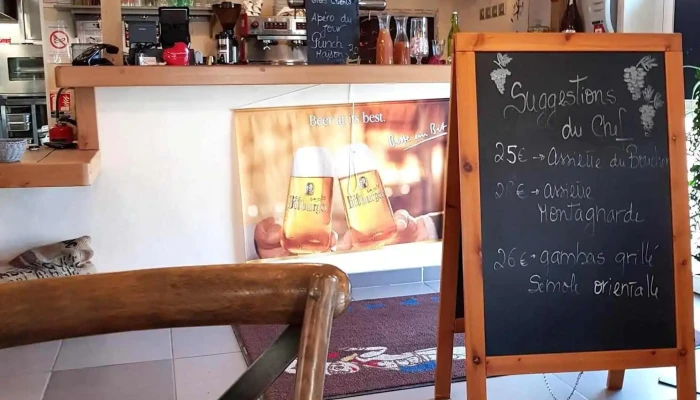 Apéro du
Jour
Punch
Maison
Beer at its best.
Bitte ein Bit
Bitburger
Bitburger
Suggestions
du Chef
25€ → Assiette du Boucher
assiette
Montagnarde
26€ → gambas grillé
Semoule orientall